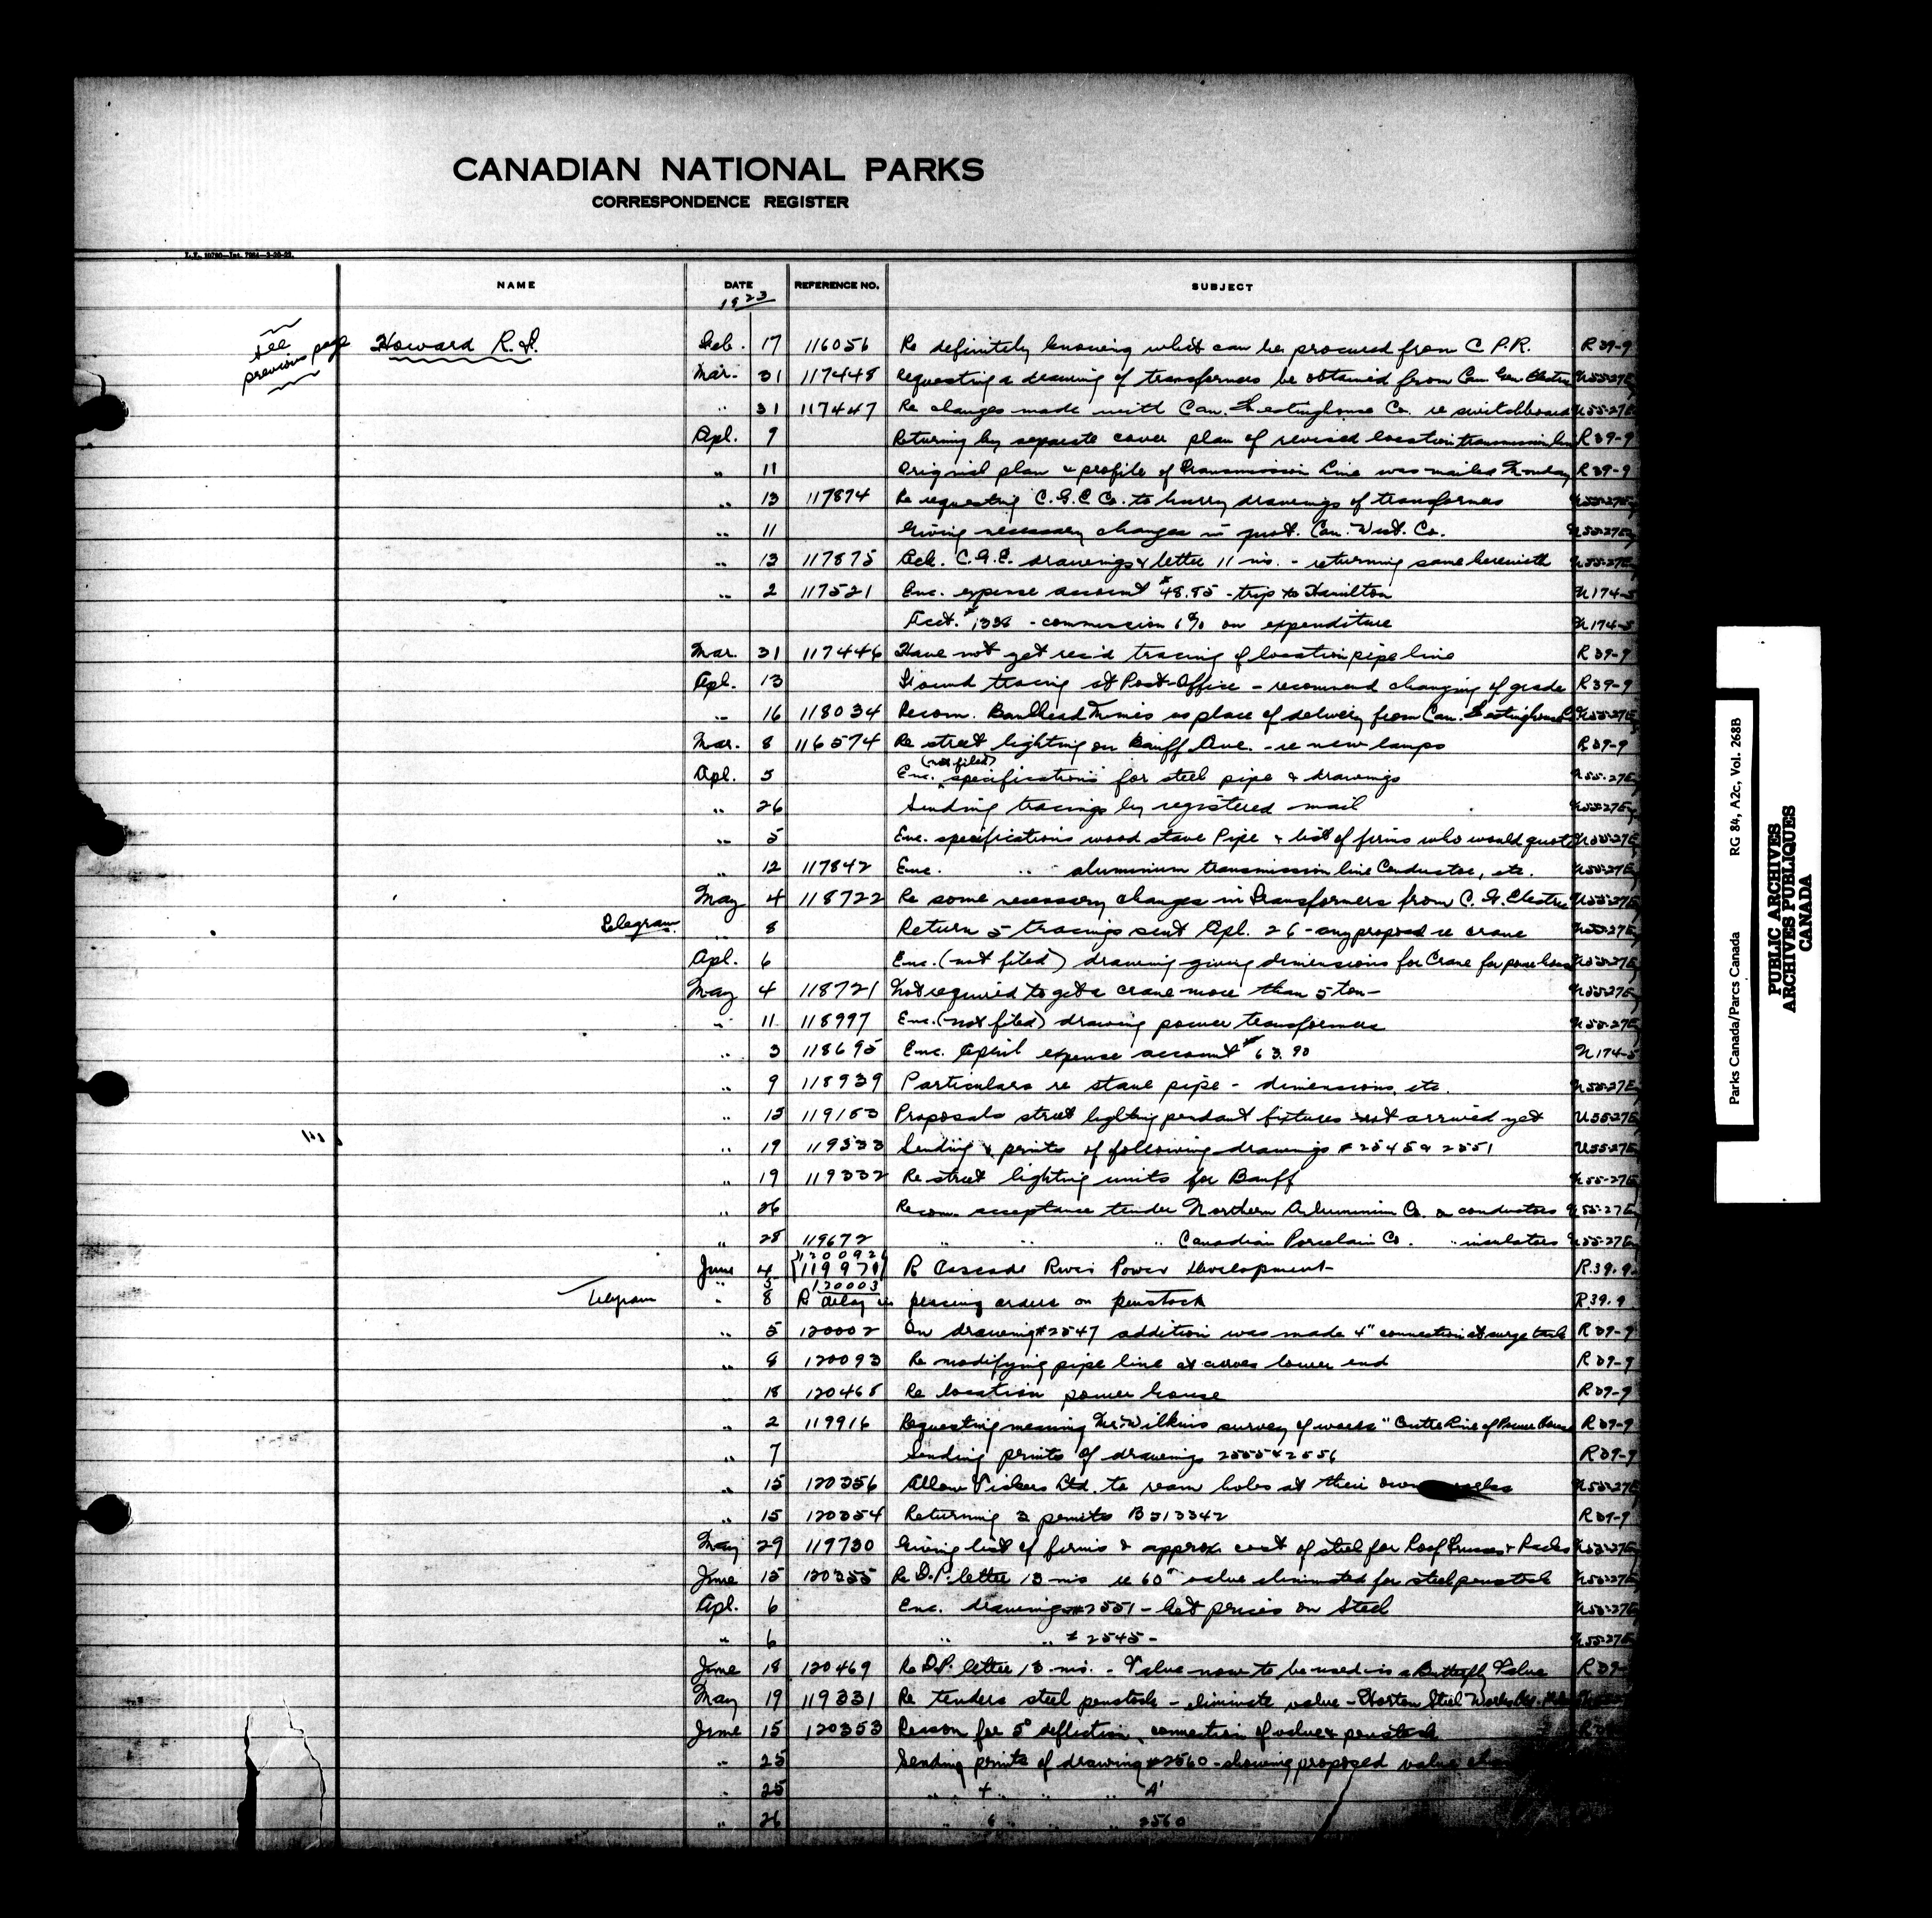 CANADIAN NATIONAL PARKS
CORRESPONDENCE REGISTER
NAME DATE REFERENCE NO. SUBJECT
1923
see previous page
Howard R.F. Feb. 17 116056 Re definitely knowing what can be procured from C P.R. R39-9
Mar. 31 117448 Requesting a drawing of transformers be obtained from Can. Gen. Electric U55-27E
" 31 117447 Re changes made with Can. Westinghouse Co. re switchboard U55-27E
Apl. 9 Returning by separate cover plan of revised location transmission line R39-9
" 11 Original plan & profile of Transmission Line was mailed Monday R39-9
" 13 117874 Re requesting C.G.E Co. to hurry drawings of transformers U55-27Eg
" 11 Giving necessary changes in quot. Can. West. Co. U55-27Eg
" 13 117875 Ack. C.G.E. drawings & letter 11 ins. - returning same herewith U55-27E
" 2 117521 Enc. expense account $48.85 - trip to Hamilton U174-5
Acct. $1338 - commission 6% on expenditure U174-5
Mar. 31 117446 Have not yet rec'd tracing of location pipe line R39-9
Apl. 13 Found tracing at Post-Office - recommend changing of grade R39-9
" 16 118034 Recom. Bankhead Mines as place of delivery from Can. Westinghouse Co U55-27E
Mar. 8 116574 Re street lighting on Banff Ave. - re new lamps R39-9
Apl. 5 Enc. (not filed) specifications for steel pipe & drawings U55-27E
" 26 Sending tracings by registered mail U55-27Eg
" 5 Enc. specifications wood stave Pipe & list of firms who would quote U55-27E
" 12 117842 Enc. " aluminium transmission line Conductor, etc. U55-27E
May 4 118722 Re some necessary changes in Transformers from C. G. Electric U55-27E
Telegram " 8 Return 5 tracings sent Apl. 26 - any proposed re crane U55-27E
Apl. 6 Enc. (not filed) drawing giving dimensions for Crane for power house U55-27E
May 4 118721 Not required to get a crane more than 5 ton- U55-27E
" 11 118997 Enc. (not filed) drawing power transformers U55-27E
" 3 118695 Enc. April expense account $63.90 U174-5
" 9 118939 Particulars re stave pipe - dimensions, etc. U55-27E
" 15 119153 Proposals street lighting pendant fixtures not arrived yet U55-27E
" 19 119333 Sending prints of following drawings # 2545 & 2551 U55-27E
" 19 119332 Re street lighting units for Banff U55-27E
" 26 Recom. acceptance tender Northern Aluminium Co. conductors U55-27E
" 28 119672 " " " Canadian Porcelain Co. " insulators U55-27E
June 4 {120092 119970} R Cascade River Power Development R.39.9.
" 5 120003
Telegram " 8 R delay in placing orders on penstock R.39.9
" 5 120002 On drawing #2547 addition was made 4" connection at surge tank R39-9
" 8 120093 Re modifying pipe line at lower end R39-9
" 18 120468 Re location power house R39-9
" 2 119916 Requesting meaning Mr. Wilkins survey of words "Centre Line of Power House R39-9
" 7 Sending prints of drawings 2555 & 2556 R39-9
" 15 120356 Allow Vickers Ltd. to ream holes at their own U55-27E
" 15 120354 Returning 2 prints B513342 R39-9
May 29 119730 Giving list of firms & approx. cost of steel for Roof Trusses & Racks U55-27E
June 15 120355 Re D.P. letter 13 ins re 60" valve eliminated for steel penstock U55-27E
Apl. 6 Enc. drawing #2551 - Get prices on Steel U55-27E
" 6 " " # 2545 - U55-27E
June 18 120469 Re D.P. letter 13 ins. - Valve now to be used is a Butterfly Valve R39-
May 19 119331 Re tenders steel penstock - eliminate valve - Horton Steel Works
June 15 120353 Reason for 5° deflection, connection of valve & penstock
" 25 Sending prints of drawing #2560 - showing proposed valve
" 25 " 4 " " A'
" 26 " 6 " " 2560
Parks Canada/Parcs Canada RG 84, A2c, Vol. 268B
PUBLIC ARCHIVES
ARCHIVES PUBLIQUES
CANADA